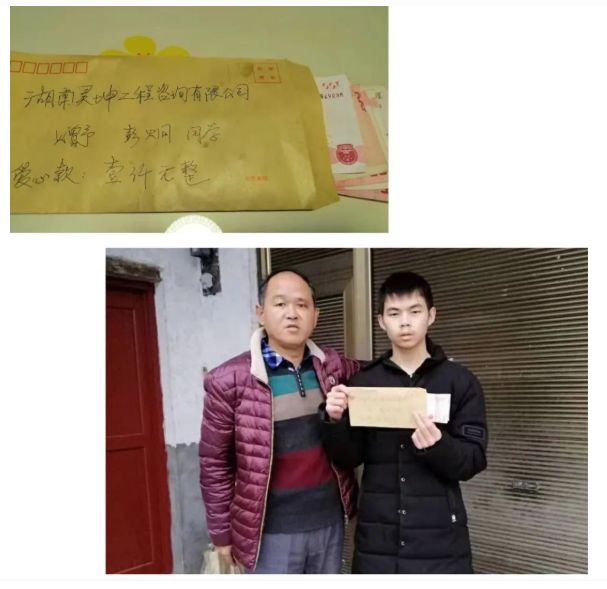 湖南昊坤工程咨询有限公司
赠予 彭炯 同学
爱心款：壹仟元整